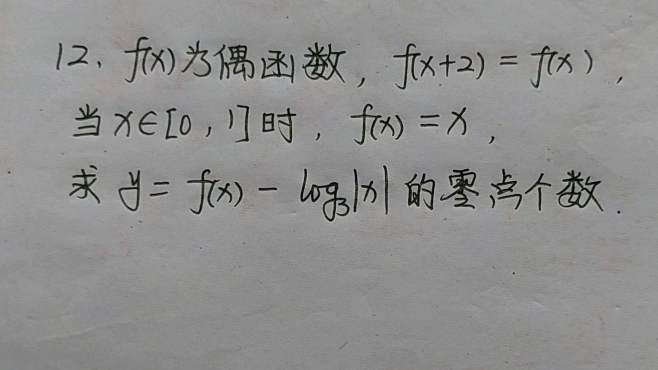 12、f(x)为偶函数，f(x+2)=f(x)，
当x∈[0，1]时，f(x)=x，
求 y=f(x)-log₃|x|的零点个数.